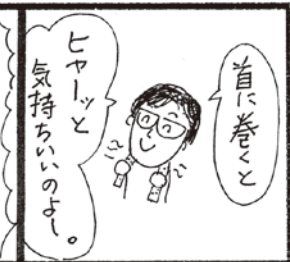 首に巻くと
ヒャーッと
気持ちいいのよー。